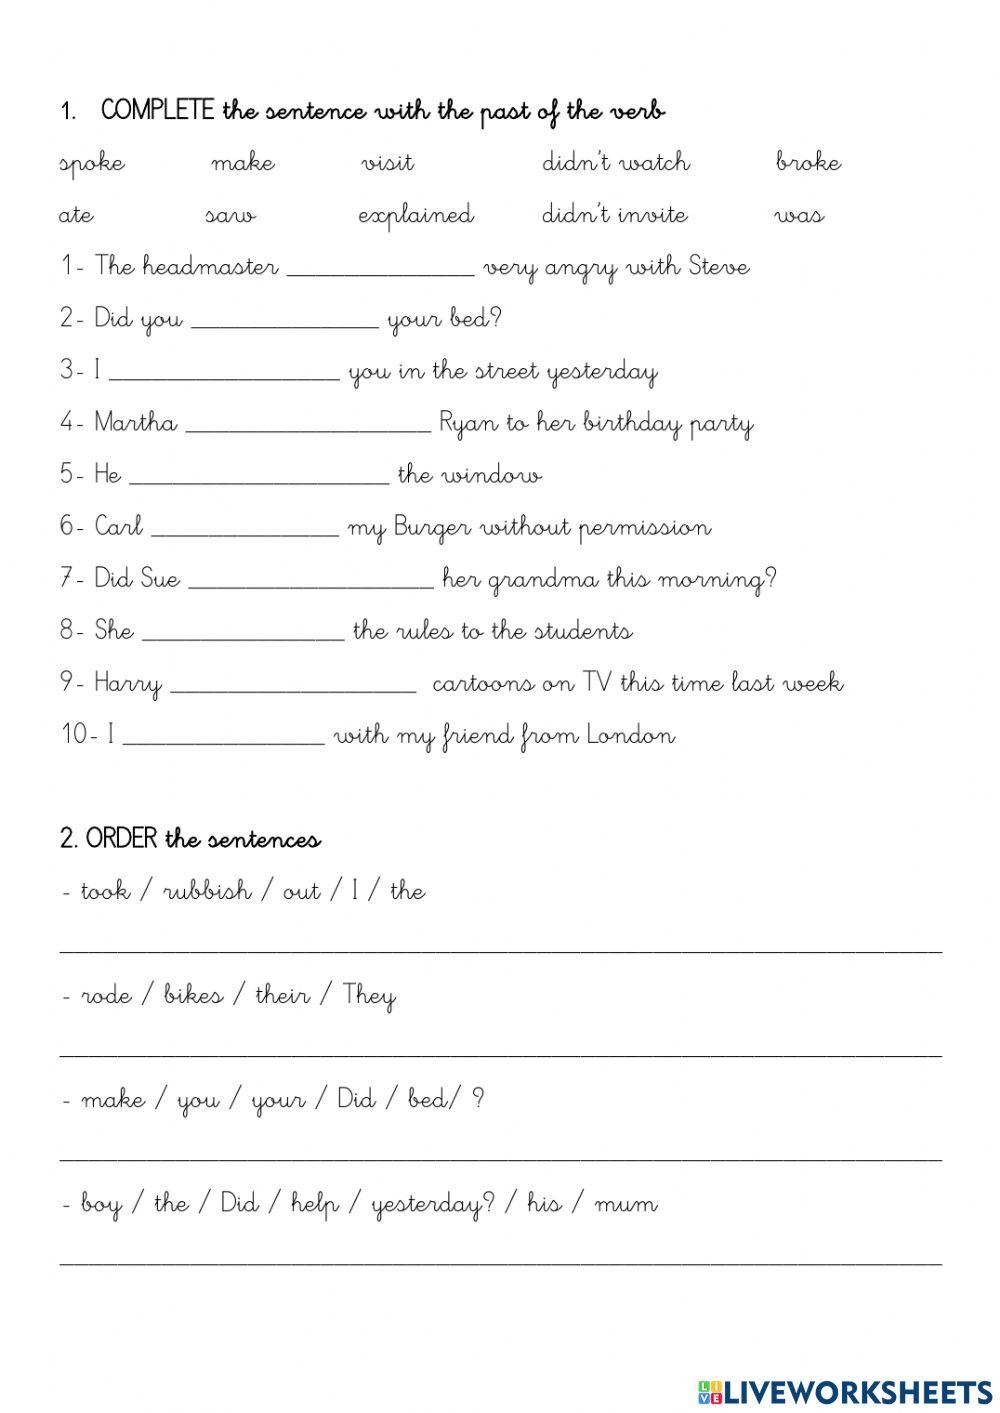 1. COMPLETE the sentence with the past of the verb
spoke make visit didn't watch broke
ate saw explained didn't invite was
1- The headmaster _____________ very angry with Steve
2- Did you _____________ your bed?
3- I ________________ you in the street yesterday
4- Martha _________________ Ryan to her birthday party
5- He __________________ the window
6- Carl _____________ my Burger without permission
7- Did Sue _________________ her grandma this morning?
8- She ______________ the rules to the students
9- Harry _________________ cartoons on TV this time last week
10- I ______________ with my friend from London
2. ORDER the sentences
- took / rubbish / out / I / the
_____________________________________________________________
- rode / bikes / their / They
_____________________________________________________________
- make / you / your / Did / bed/ ?
_____________________________________________________________
- boy / the / Did / help / yesterday? / his / mum
_____________________________________________________________
LIVE LIVEWORKSHEETS